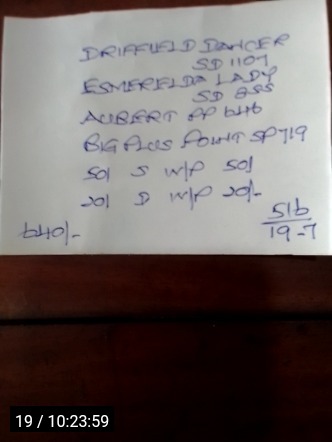 DRIFFIELD DANCER
SD 1107
ESMERELDA LADY
SD 855
AUBERT PP 646
BIG PLUS POINT SP 719
50/ S W/P 50/
20/ D W/P 20/-
640/-
516
19-7
19 / 10:23:59